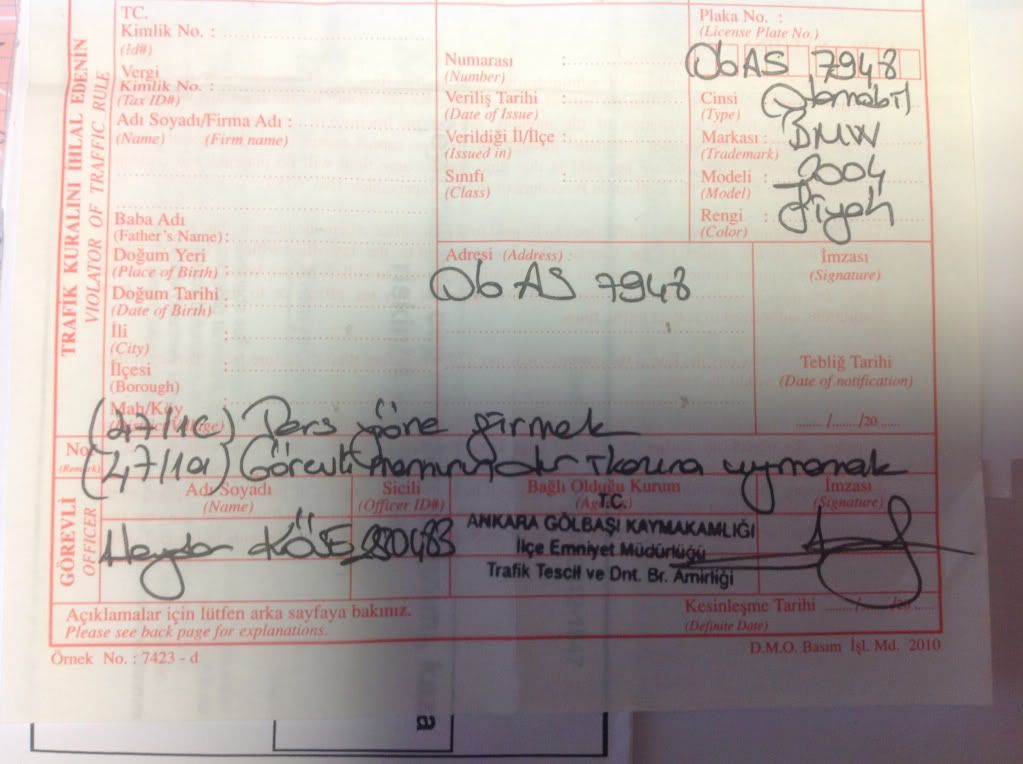 TRAFİK KURALINI İHLAL EDENİN
VIOLATOR OF TRAFFIC RULE
TC.
Kimlik No. :
(Id#)
Vergi
Kimlik No. :
(Tax ID#)
Adı Soyadı/Firma Adı :
(Name) (Firm name)
Baba Adı
(Father's Name) :
Doğum Yeri
(Place of Birth) :
Doğum Tarihi :
(Date of Birth)
İli :
(City)
İlçesi :
(Borough)
Mah/Köy
Numarası :
(Number)
Veriliş Tarihi :
(Date of Issue)
Verildiği İl/İlçe :
(Issued in)
Sınıfı :
(Class)
Plaka No. :
(License Plate No.)
06 AS 7948
Cinsi Otomobil
(Type)
Markası : BMW
(Trademark)
Modeli : 2004
(Model)
Rengi : Siyah
(Color)
Adresi (Address) :
06 AS 7948
İmzası
(Signature)
Tebliğ Tarihi
(Date of notification)
...... /...... /20 ......
(47/1C) Ters yöne girmek
No
(Remark)
(47/1a) ikazına uymamak
GÖREVLİ
OFFICER
Adı Soyadı
(Name)
Sicili
(Officer ID#)
Bağlı Olduğu Kurum
İmzası
(Signature)
Haydar KÖSE 280483
T.C.
ANKARA GÖLBAŞI KAYMAKAMLIĞI
İlçe Emniyet Müdürlüğü
Trafik Tescil ve Dnt. Br. Amirliği
Açıklamalar için lütfen arka sayfaya bakınız.
Please see back page for explanations.
Kesinleşme Tarihi ....../....../20......
(Definite Date)
Örnek No. : 7423 - d
D.M.O. Basım İşl. Md. 2010
a